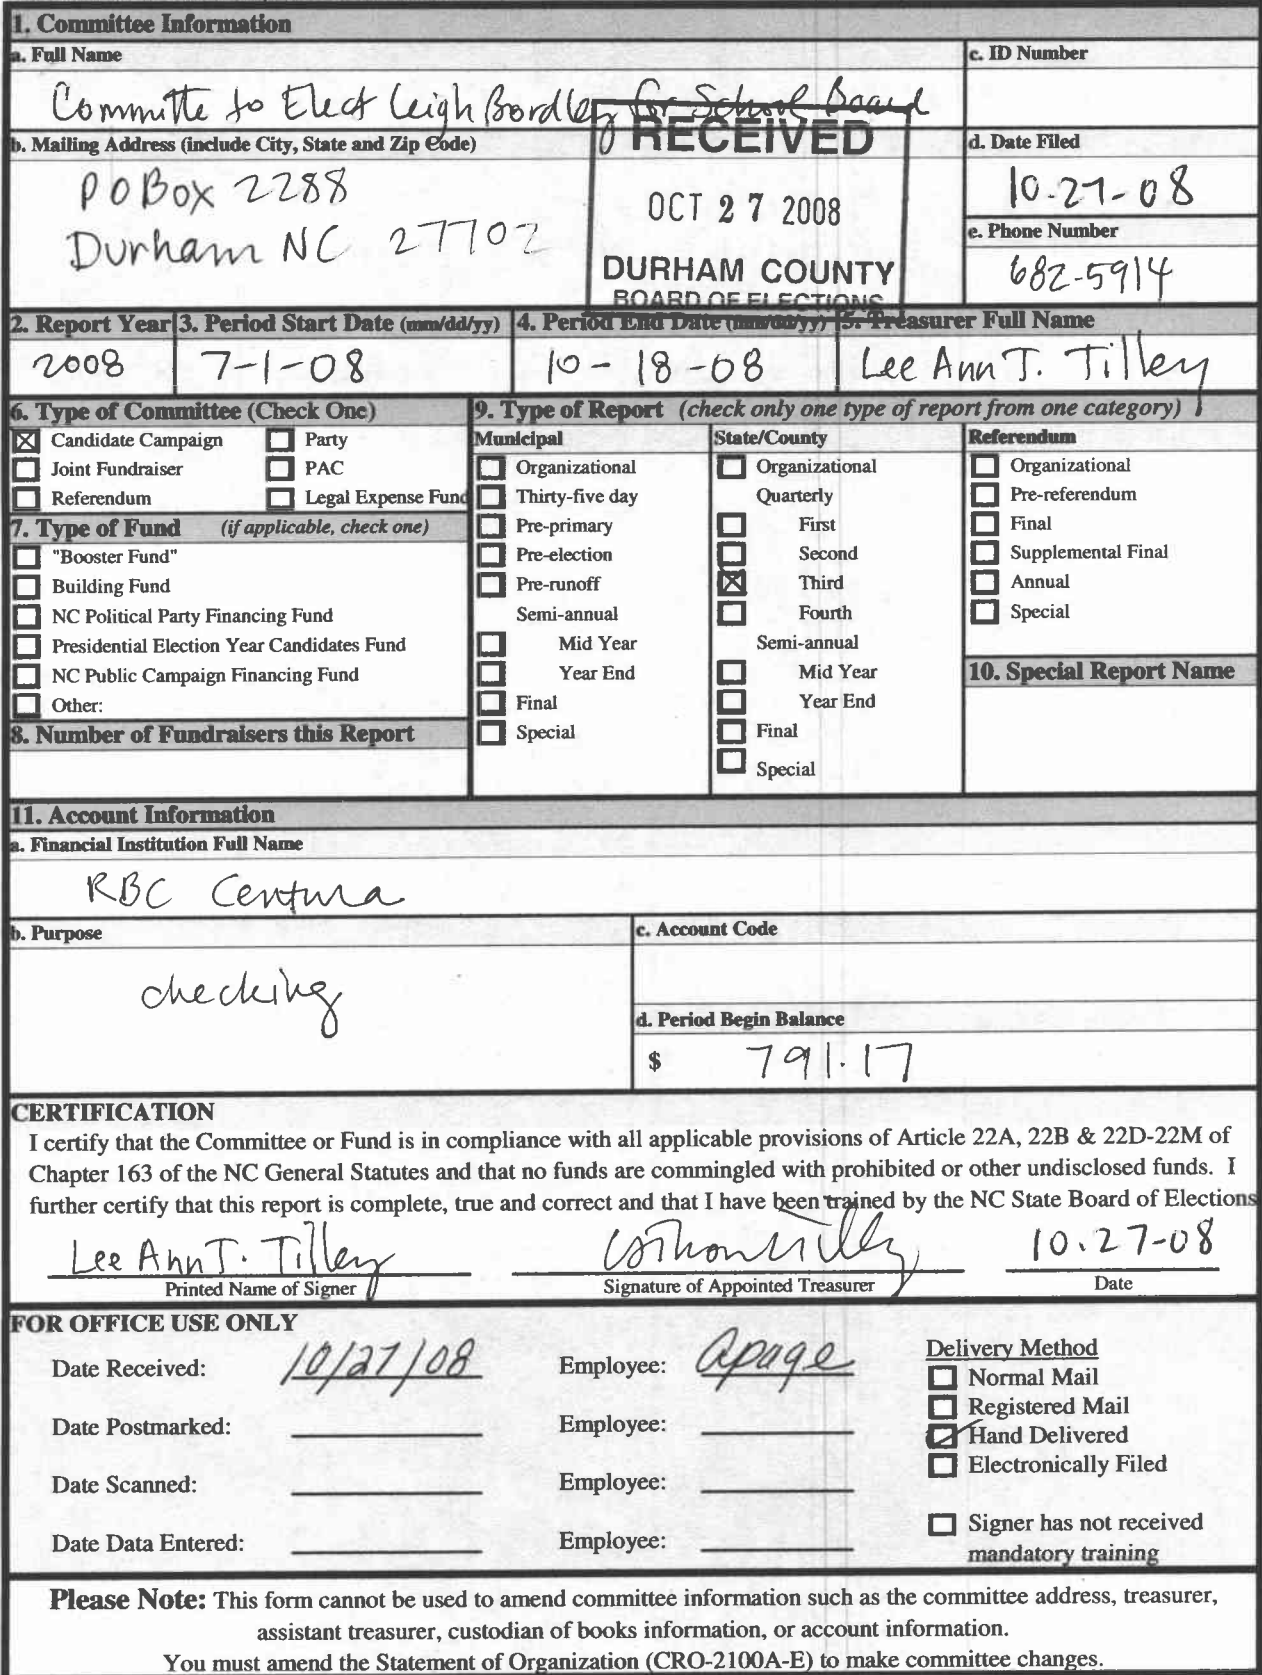 1. Committee Information
a. Full Name
c. ID Number
Committe to Elect Leigh Bordley for School Board
b. Mailing Address (include City, State and Zip Code)
PO Box 2288
Durham NC 27702
RECEIVED
OCT 27 2008
DURHAM COUNTY
BOARD OF ELECTIONS
d. Date Filed
10-27-08
e. Phone Number
682-5914
2. Report Year
3. Period Start Date (mm/dd/yy)
4. Period End Date (mm/dd/yy)
5. Treasurer Full Name
2008
7-1-08
10-18-08
Lee Ann T. Tilley
6. Type of Committee (Check One)
Candidate Campaign
Party
Joint Fundraiser
PAC
Referendum
Legal Expense Fund
7. Type of Fund (if applicable, check one)
"Booster Fund"
Building Fund
NC Political Party Financing Fund
Presidential Election Year Candidates Fund
NC Public Campaign Financing Fund
Other:
8. Number of Fundraisers this Report
9. Type of Report (check only one type of report from one category)
Municipal
Organizational
Thirty-five day
Pre-primary
Pre-election
Pre-runoff
Semi-annual
Mid Year
Year End
Final
Special
State/County
Organizational
Quarterly
First
Second
Third
Fourth
Semi-annual
Mid Year
Year End
Final
Special
Referendum
Organizational
Pre-referendum
Final
Supplemental Final
Annual
Special
10. Special Report Name
11. Account Information
a. Financial Institution Full Name
RBC Centura
b. Purpose
checking
c. Account Code
d. Period Begin Balance
$ 791.17
CERTIFICATION
I certify that the Committee or Fund is in compliance with all applicable provisions of Article 22A, 22B & 22D-22M of
Chapter 163 of the NC General Statutes and that no funds are commingled with prohibited or other undisclosed funds. I
further certify that this report is complete, true and correct and that I have been trained by the NC State Board of Elections
Lee Ann T. Tilley
10.27-08
Printed Name of Signer
Signature of Appointed Treasurer
Date
FOR OFFICE USE ONLY
Date Received: 10/27/08
Employee: apage
Date Postmarked:
Employee:
Date Scanned:
Employee:
Date Data Entered:
Employee:
Delivery Method
Normal Mail
Registered Mail
Hand Delivered
Electronically Filed
Signer has not received
mandatory training
Please Note: This form cannot be used to amend committee information such as the committee address, treasurer,
assistant treasurer, custodian of books information, or account information.
You must amend the Statement of Organization (CRO-2100A-E) to make committee changes.